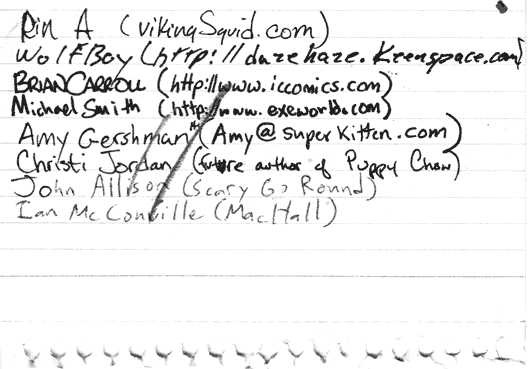 Rin A (vikingSquid.com)
WolfBoy (http://dazehaze.Keenspace.com)
BRIAN CARROLL (http://www.iccomics.com)
Michael Smith (http://www.exeworld.com)
Amy Gershman (Amy@superkitten.com)
Christi Jordan (future author of Puppy Chow)
John Allison (Scary Go Round)
Ian McConville (MacHall)